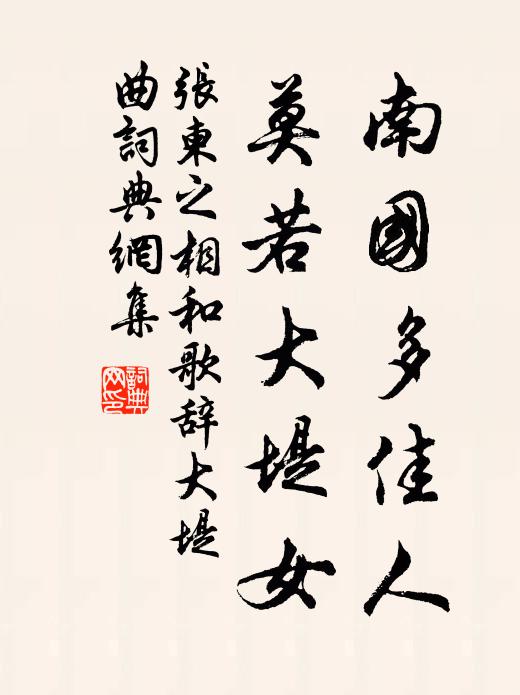 南國多佳人
莫若大堤女
張東之相和歌辞大堤
曲詞典網集
詞典网印